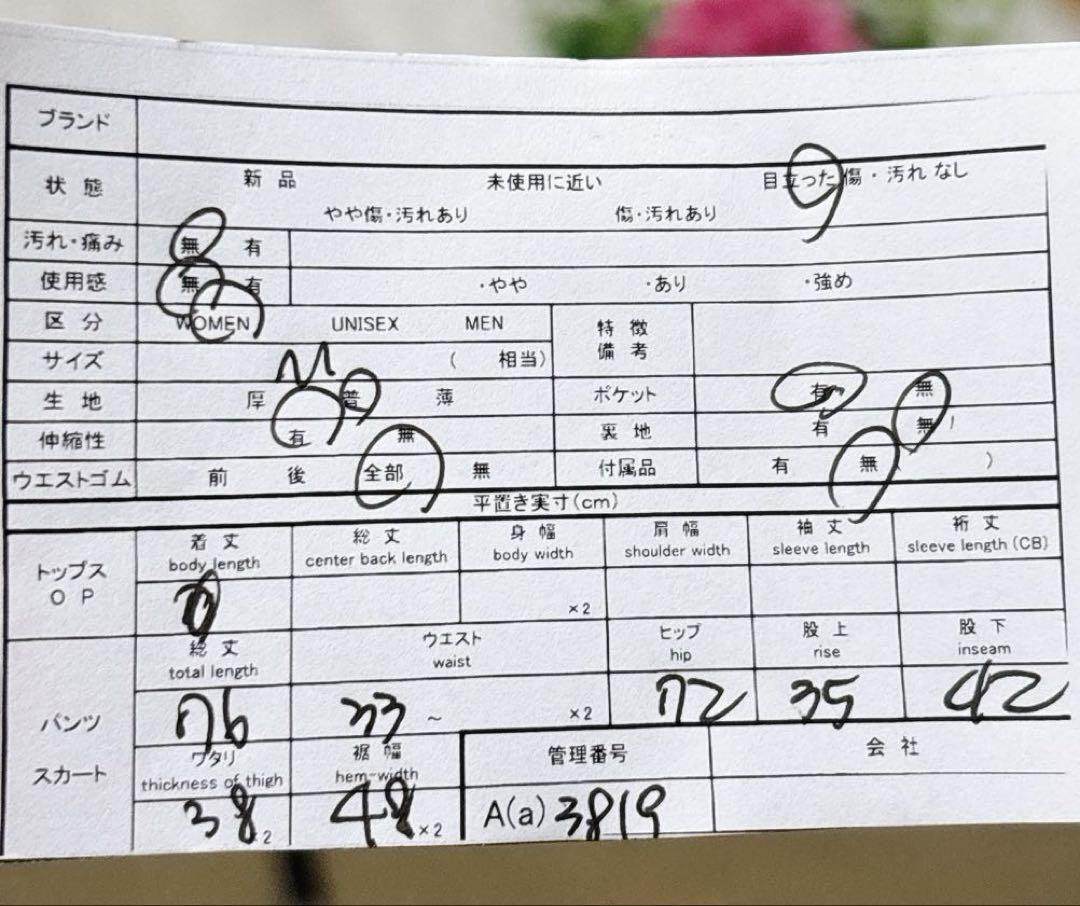 ブランド
状態 新品 未使用に近い 目立った傷・汚れなし
やや傷・汚れあり 傷・汚れあり
汚れ・痛み 無 有
使用感 無 有 ・やや ・あり ・強め
区分 WOMEN UNISEX MEN 特徴
備考
サイズ M ( 相当)
生地 厚 普 薄 ポケット 有 無
伸縮性 有 無 裏地 有 無
ウエストゴム 前 後 全部 無 付属品 有 無 )
平置き実寸(cm)
トップス
OP
着丈 総丈 身幅 肩幅 袖丈 裄丈
body length center back length body width shoulder width sleeve length sleeve length (CB)
×2
総丈 ウエスト ヒップ 股上 股下
total length waist hip rise inseam
パンツ 76 33 ~ ×2 72 35 42
スカート
ワタリ 裾幅 管理番号 会社
thickness of thigh hem-width
38 2 48 ×2 A(a) 3819